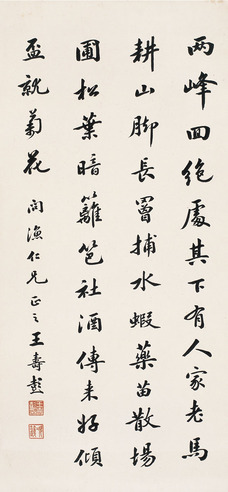 两峰回絶處其下有人家老馬
耕山脚長罾捕水蝦藥苗散場
圃松葉暗籬笆社酒傳来好傾
盃就菊花 问漁仁兄正之 王壽彭